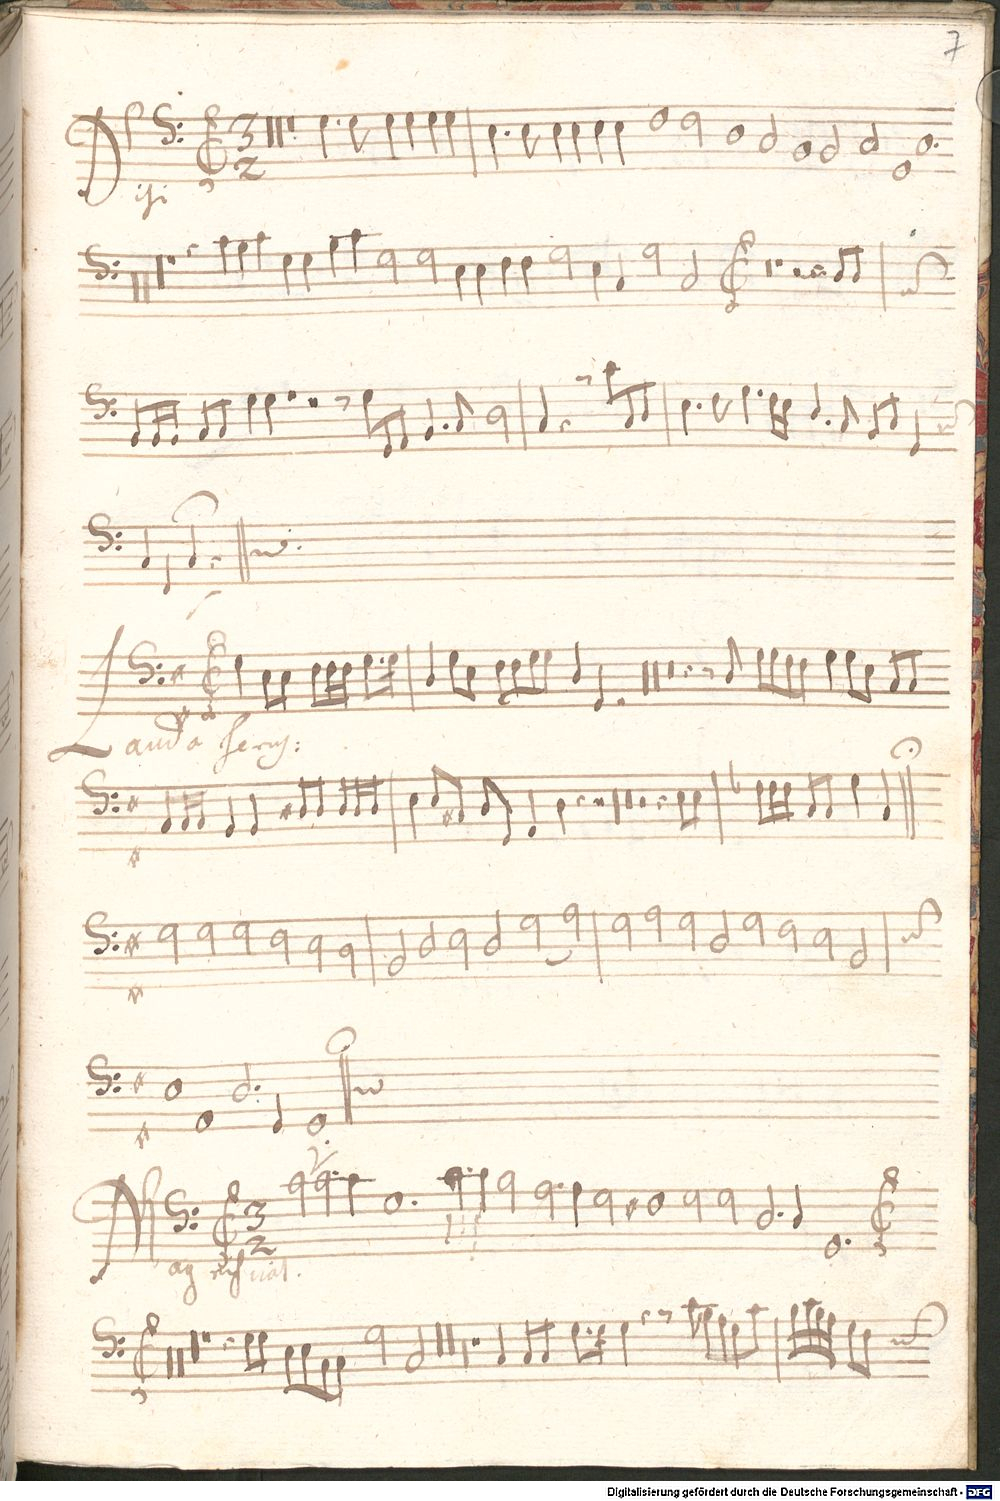 7
Nisi
3
2
Lauda Jerus:
Magnificat.
3
2
Digitalisierung gefördert durch die Deutsche Forschungsgemeinschaft - DFG